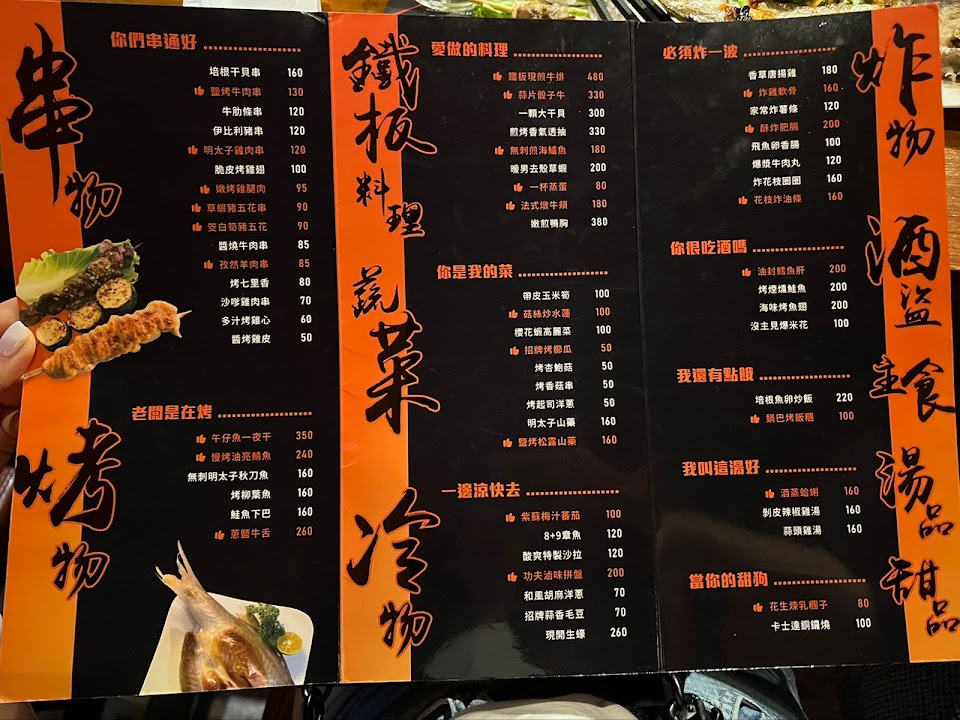 串物
你們串通好
培根干貝串 160
鹽烤牛肉串 130
牛肋條串 120
伊比利豬串 120
明太子雞肉串 120
脆皮烤雞翅 100
嫩烤雞腿肉 95
草蝦豬五花串 90
筊白筍豬五花 90
醬燒牛肉串 85
孜然羊肉串 85
烤七里香 80
沙嗲雞肉串 70
多汁烤雞心 60
醬烤雞皮 50
烤物
老闆是在烤
午仔魚一夜干 350
慢烤油亮鯖魚 240
無刺明太子秋刀魚 160
烤柳葉魚 160
鮭魚下巴 160
蔥鹽牛舌 260
鐵板料理
愛做的料理
鐵板現煎牛排 480
蒜片骰子牛 330
一顆大干貝 300
煎烤香氣透抽 330
無刺煎海鱸魚 180
暖男去殼草蝦 200
一杯蒸蛋 80
法式燉牛頰 180
嫩煎鴨胸 380
蔬菜
你是我的菜
帶皮玉米筍 100
菇絲炒水蓮 100
櫻花蝦高麗菜 100
招牌烤櫛瓜 50
烤杏鮑菇 50
烤香菇串 50
烤起司洋蔥 50
明太子山藥 160
鹽烤松露山藥 160
冷物
一邊涼快去
紫蘇梅汁蕃茄 100
8+9章魚 120
酸爽特製沙拉 120
功夫滷味拼盤 200
和風胡麻洋蔥 70
招牌蒜香毛豆 70
現開生蠔 260
炸物
必須炸一波
香草唐揚雞 180
炸雞軟骨 160
家常炸薯條 120
酥炸肥腸 200
飛魚卵香腸 100
爆漿牛肉丸 120
炸花枝圈圈 160
花枝炸油條 160
酒盜
你很吃酒嗎
油封鱈魚肝 200
烤煙燻鮭魚 200
海味烤魚翅 200
沒主見爆米花 100
主食
我還有點餓
培根魚卵炒飯 220
鍋巴烤飯糰 100
湯品
我叫這湯好
酒蒸蛤蜊 160
剝皮辣椒雞湯 160
蒜頭雞湯 160
甜品
當你的甜狗
花生煉乳糰子 80
卡士達銅鑼燒 100